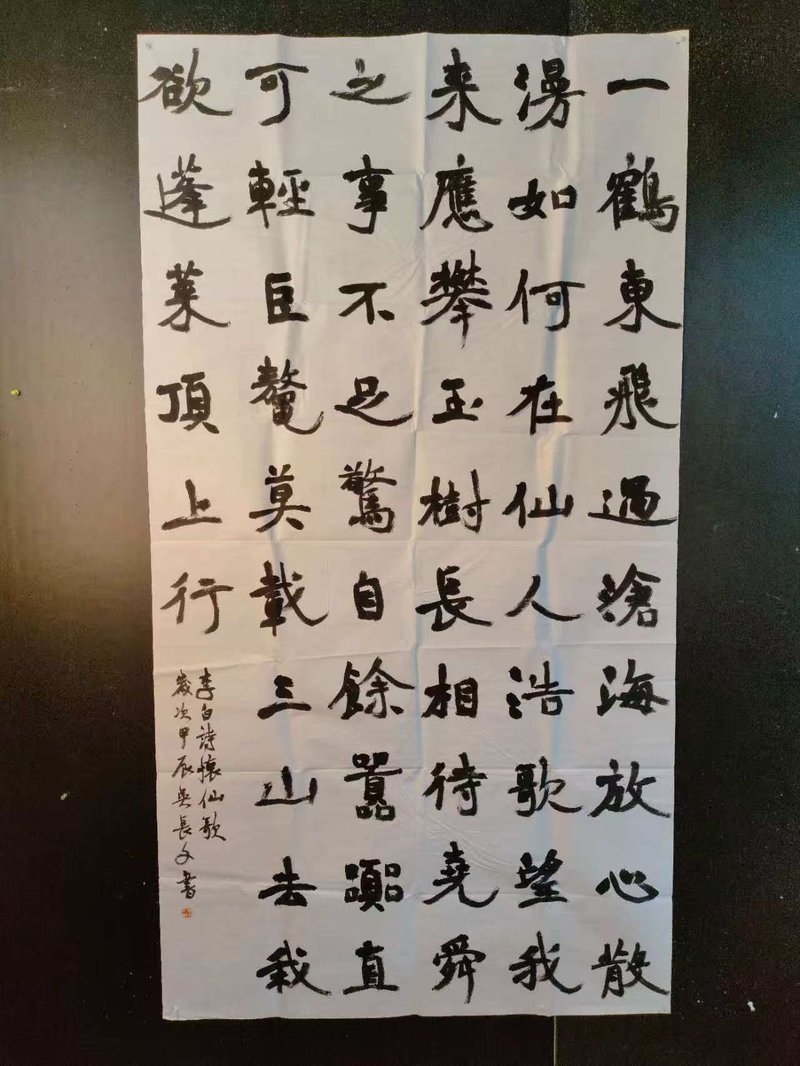 一鶴東飛過滄海放心散
漫如何在仙人浩歌望我
来應攀玉樹長相待堯舜
之事不足驚自餘囂囂直
可輕巨鼇莫載三山去我
欲蓬萊頂上行
李白詩懷仙歌
歲次甲辰吳長文書